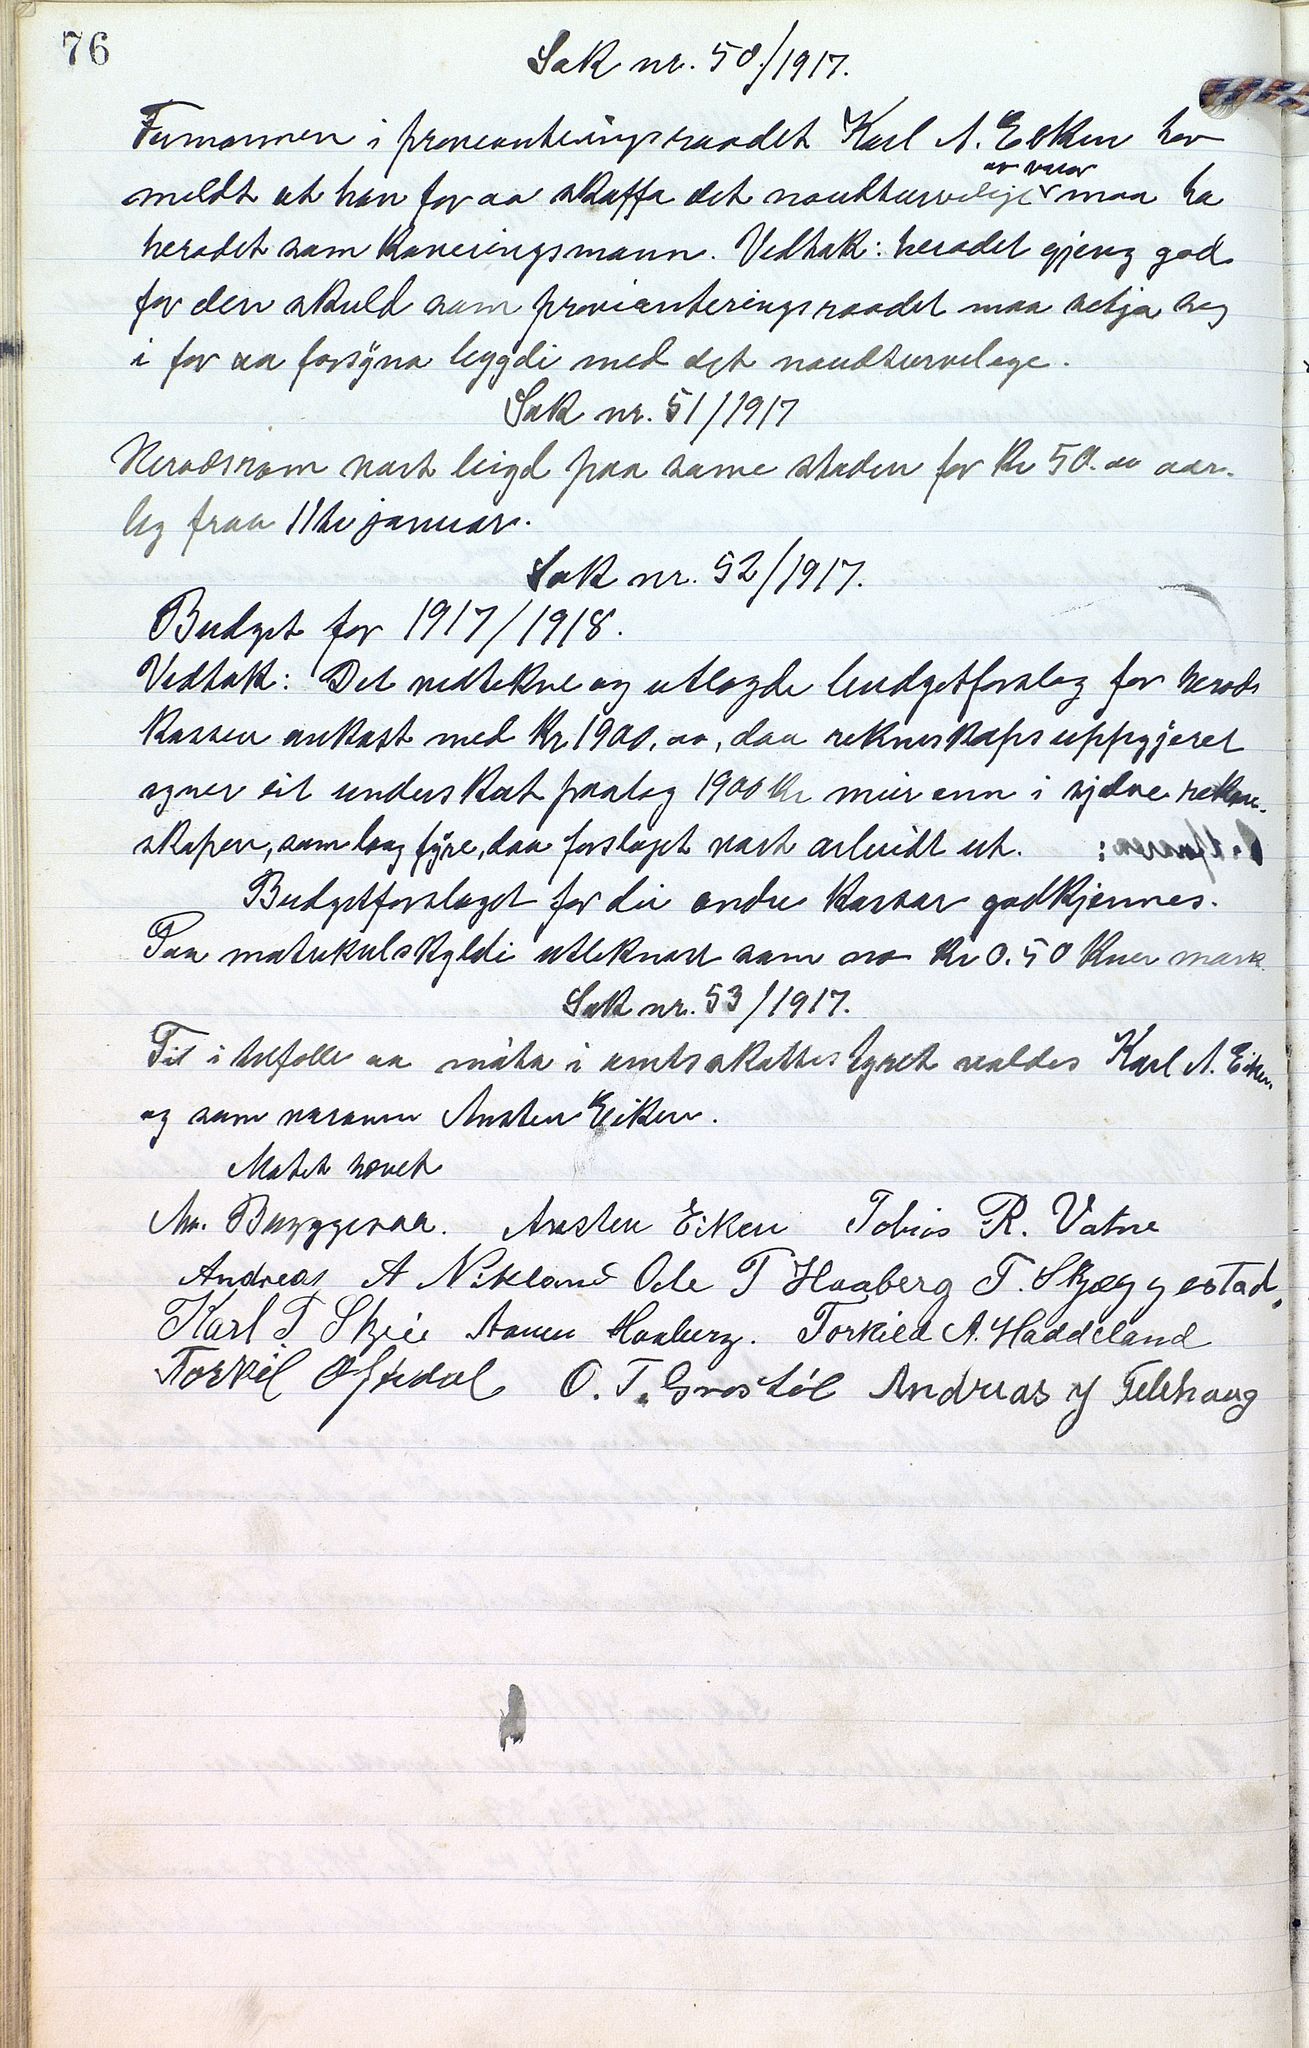 76
Sak nr. 50/1917.
Formannen i provianteringsraadet Karl A. Eiken hev
meldt at han for aa skaffa det naudturvelige av varor maa ha
heradet som kaveringsmann. Vedtak: heradet gjeng god
for den skuld som provianteringsraadet maa setja seg
i for aa forsyna bygdi med det naudturvelege.
Sak nr. 51/1917
Heradsrom vart leigd paa same staden for Kr 50.00 aar-
leg fraa 11te januar.
Sak nr. 52/1917.
Budget for 1917/1918.
Vedtak: Det vedtekne og utlagde budgetforslag for herads
kassen aukast med Kr 1900,00, daa rekneskapsuppgjeret
syner eit underskot paalag 1900 Kr meir enn i sjølve rekne-
skapen, som laag fyre, daa forslaget vart arbeidt ut.
Budgetforslaget for dei andre kassar godkjennes.
Paa matrikulskyldi utliknast som no Kr 0.50 kver mark.
Sak nr. 53/1917.
Til i tilfelle aa møta i amtsskattestyret valdes Karl A. Eiken
og som varamann Austen Eiken.
Møtet hævet
Aa. Bryggesaa. Austen Eiken Tobias R. Vatne
Andreas A Nikland Ole T Haaberg T. Skjeggestad.
Karl T Skeie Aanen Haaberg. Torkild A. Haddeland
Torkel Øfsdal O. T. Grostøl Andreas Telhaug